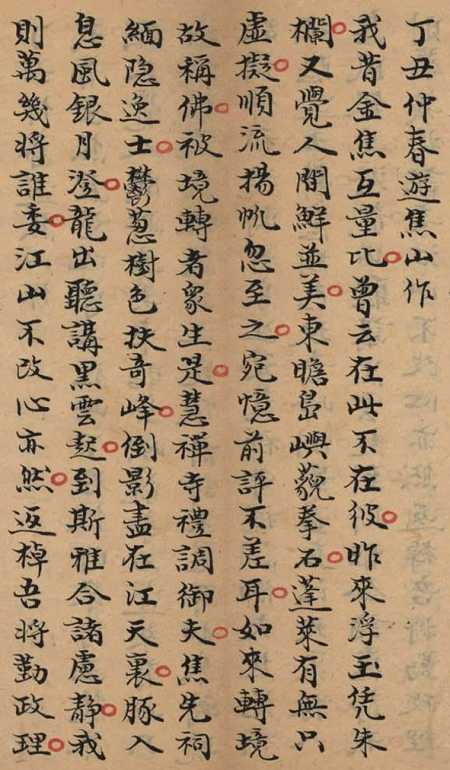 丁丑仲春遊焦山作
我昔金焦互量比曾云在此不在彼昨來浮玉凭朱
欄又覺人間鮮並美東瞻島嶼藐拳石蓬萊有無只
虛擬順流揚帆忽至之宛憶前評不差耳如來轉境
故稱佛被境轉者衆生是慧禪寺禮調御夫焦先祠
緬隐逸士鬱葱樹色扶奇峰倒影盡在江天裏豚入
息風銀月澄龍出聽講黑雲起到斯雅合諸慮静我
則萬幾將誰委江山不改心亦然返棹吾將勤政理